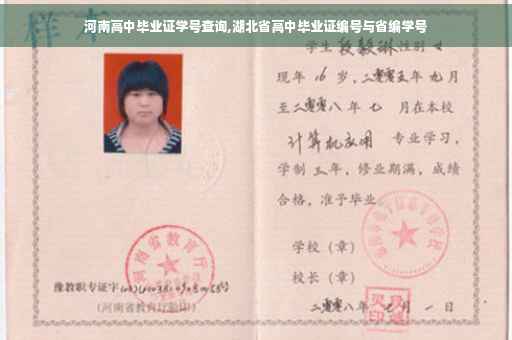 河南高中毕业证学号查询,湖北省高中毕业证编号与省编学号
样本
学生 段毅琳 性别 女
现年 16 岁,二零零五年 九月
至二零零八年 七 月在本校
计算机应用 专业学习,
学制 三 年, 修业期满, 成绩
合格, 准予毕业
学校 (章)
校长 (章)
河南省教育厅
豫教职专证字
(河南省教育厅验印)
二零零八年 七 月 一 日